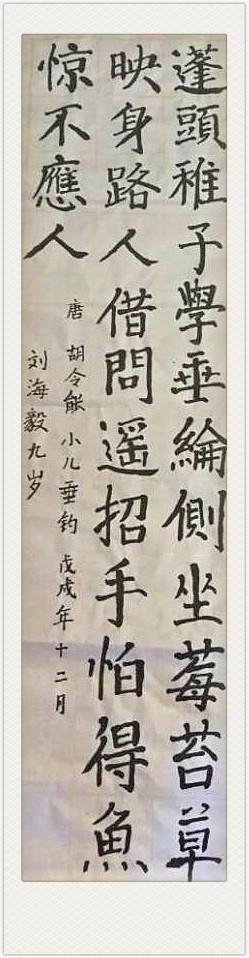 蓬頭稚子學垂綸側坐莓苔草
映身路人借問遥招手怕得魚
惊不應人
唐 胡令能 小儿垂钓 戊戌年十二月
刘海毅九岁